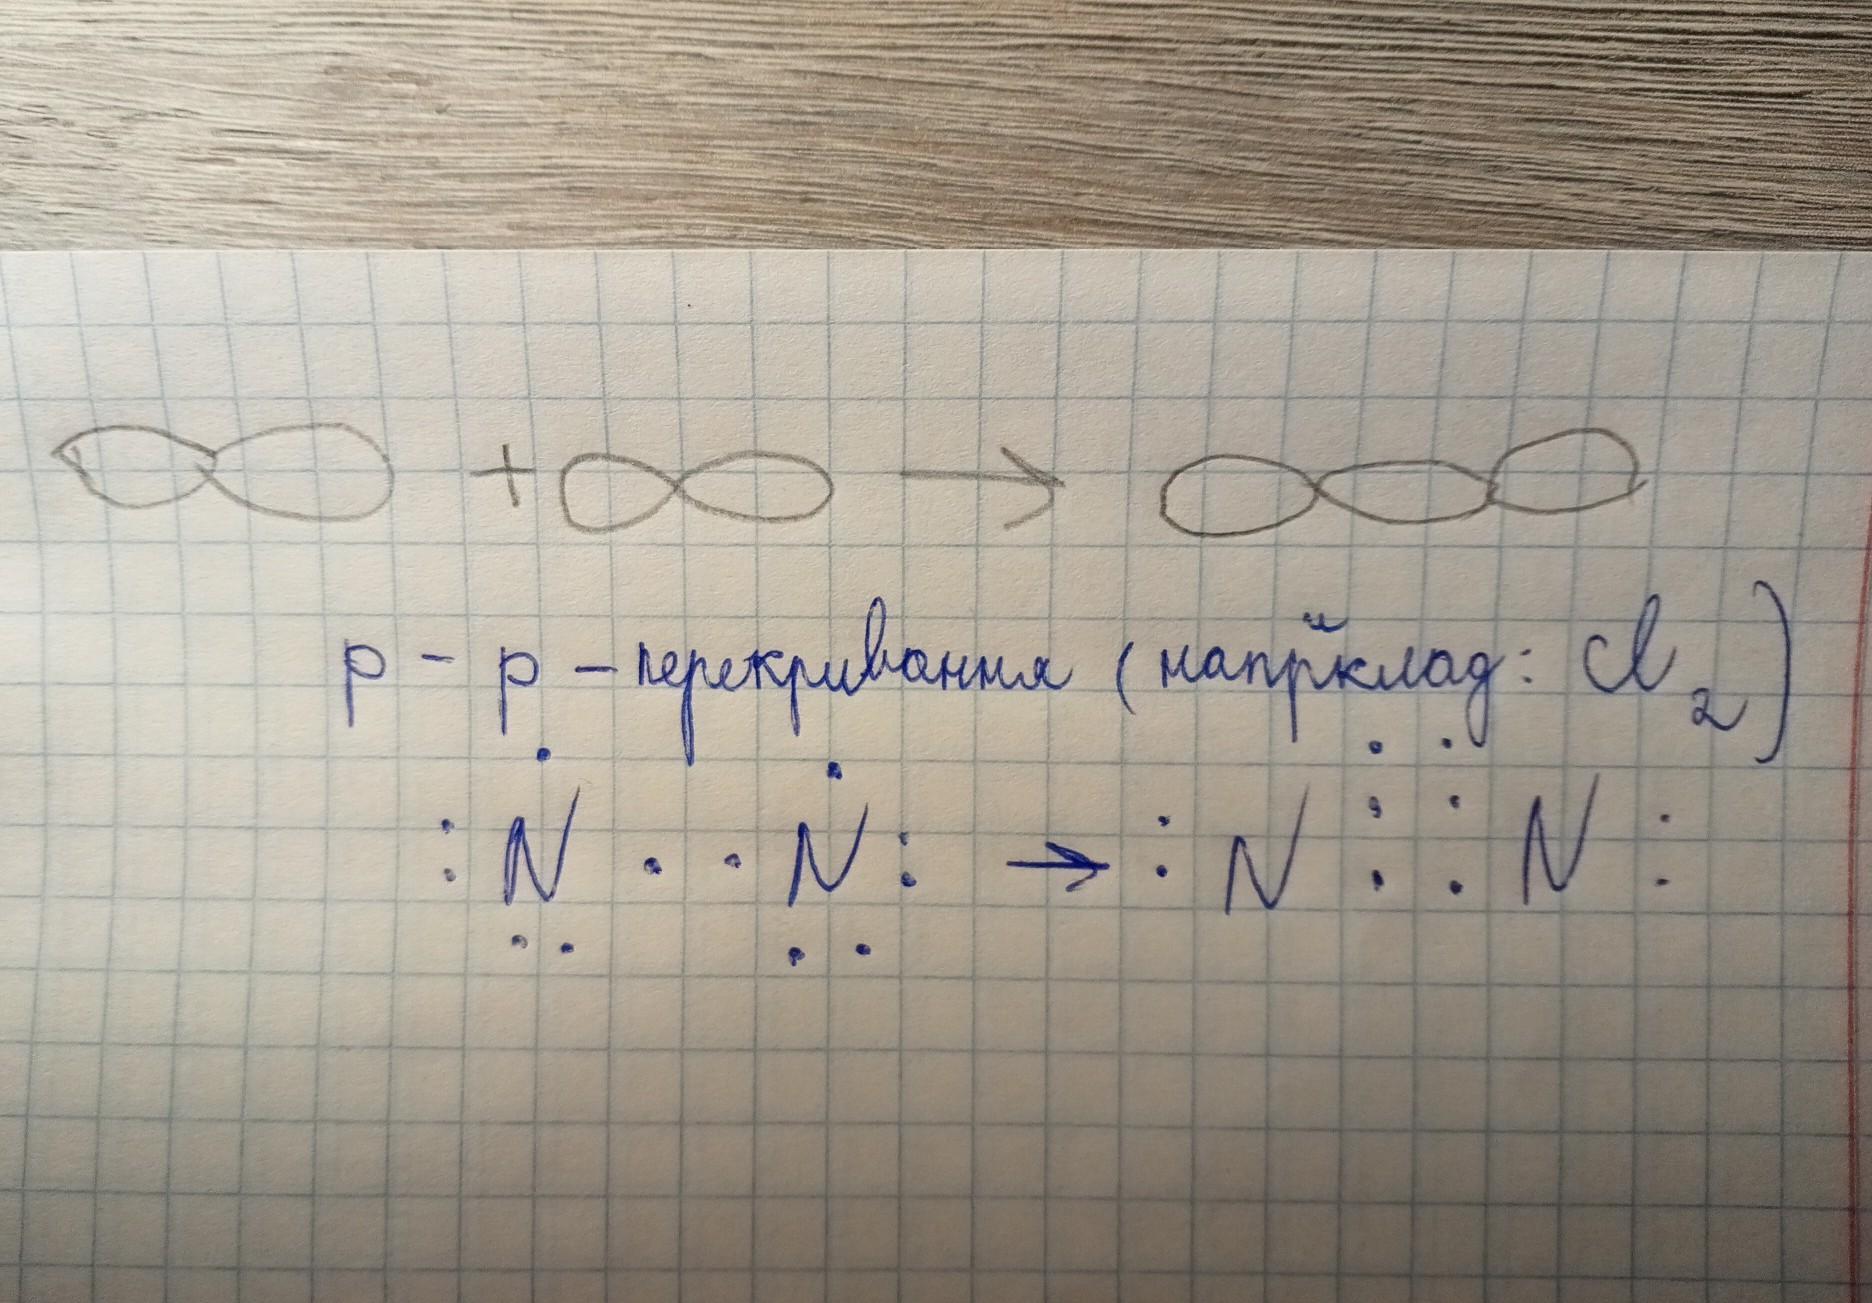 + →
p - p - перекривання (наприклад: Cl₂)
: N · · N : → : N ⋮ ⋮ N :